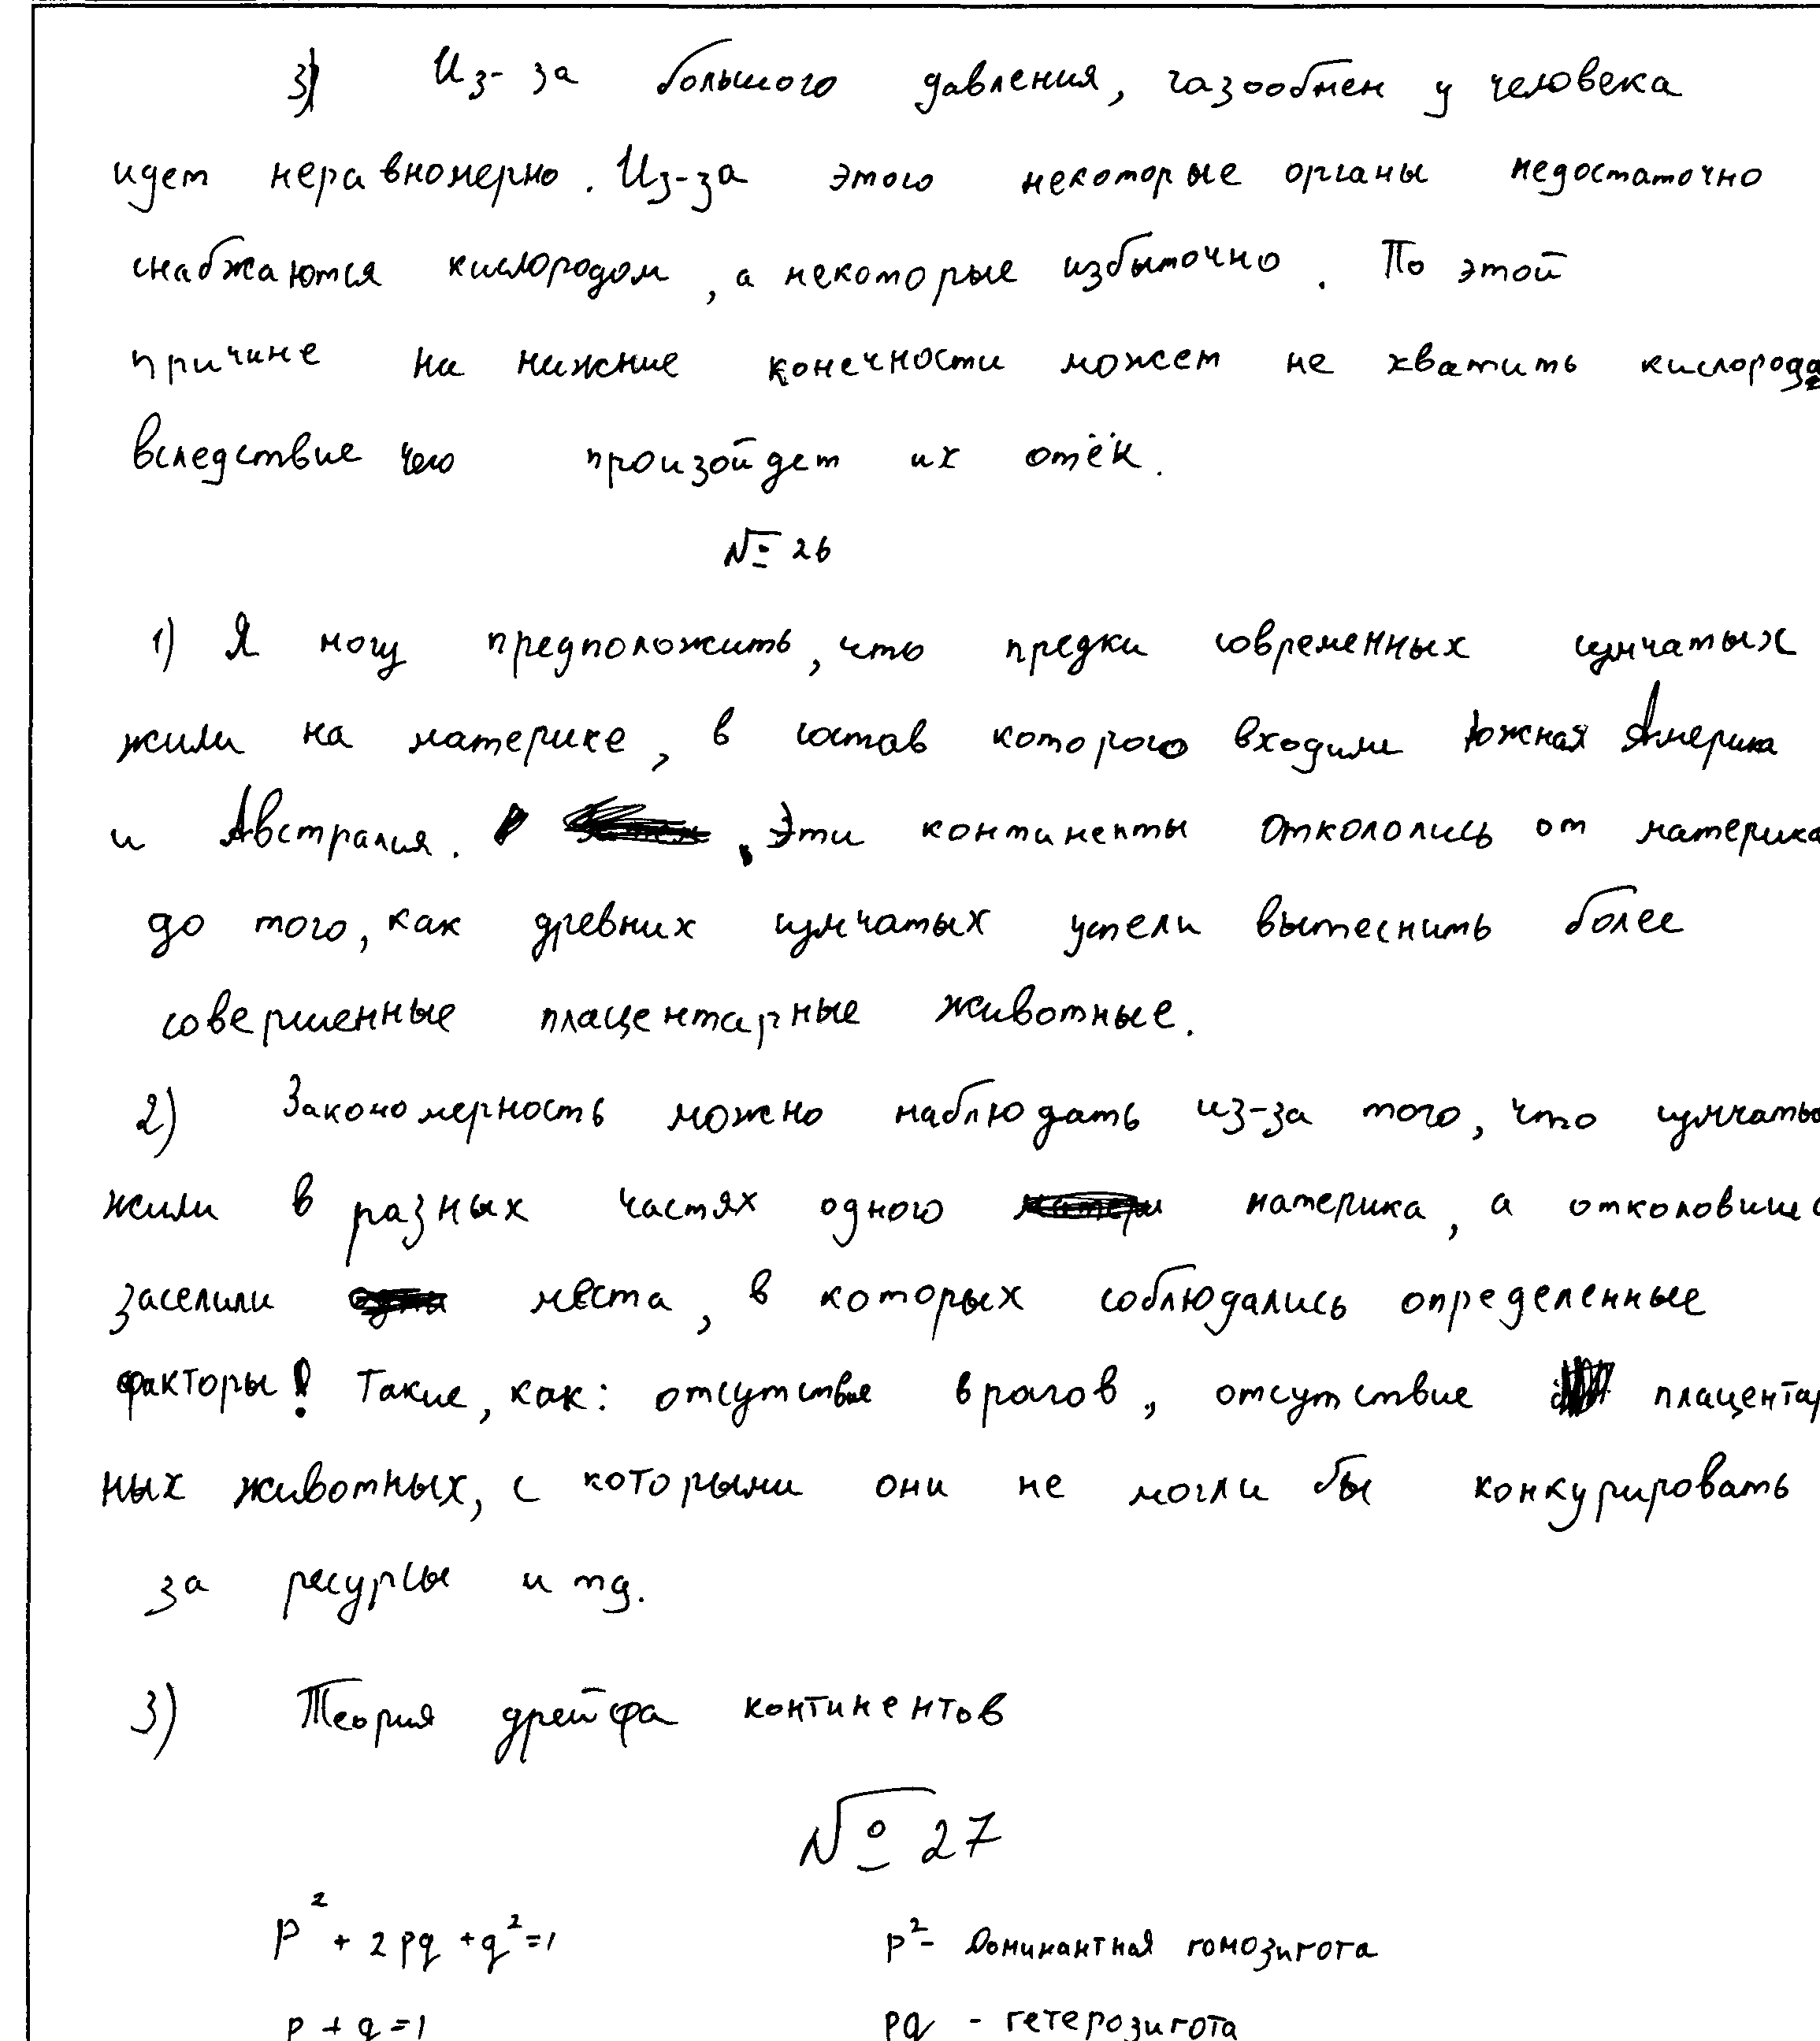 3) Из-за большого давления, газообмен у человека
идет неравномерно. Из-за этого некоторые органы недостаточно
снабжаются кислородом, а некоторые избыточно. По этой
причине на нижние конечности может не хватить кислорода
вследствие чего произойдет их отёк.
№ 26
1) Я могу предположить, что предки современных сумчатых
жили на материке, в состав которого входили Южная Америка
и Австралия. Эти континенты откололись от материка
до того, как древних сумчатых успели вытеснить более
совершенные плацентарные животные.
2) Закономерность можно наблюдать из-за того, что сумчаты
жили в разных частях одного материка, а отколовшис
заселили места, в которых соблюдались определенные
факторы! Такие, как: отсутствие врагов, отсутствие плацентар
ных животных, с которыми они не могли бы конкурировать
за ресурсы и тд.
3) Теория дрейфа континентов
№ 27
p² + 2pq + q² = 1 p² - Доминантная гомозигота
p + q = 1 pq - гетерозигота